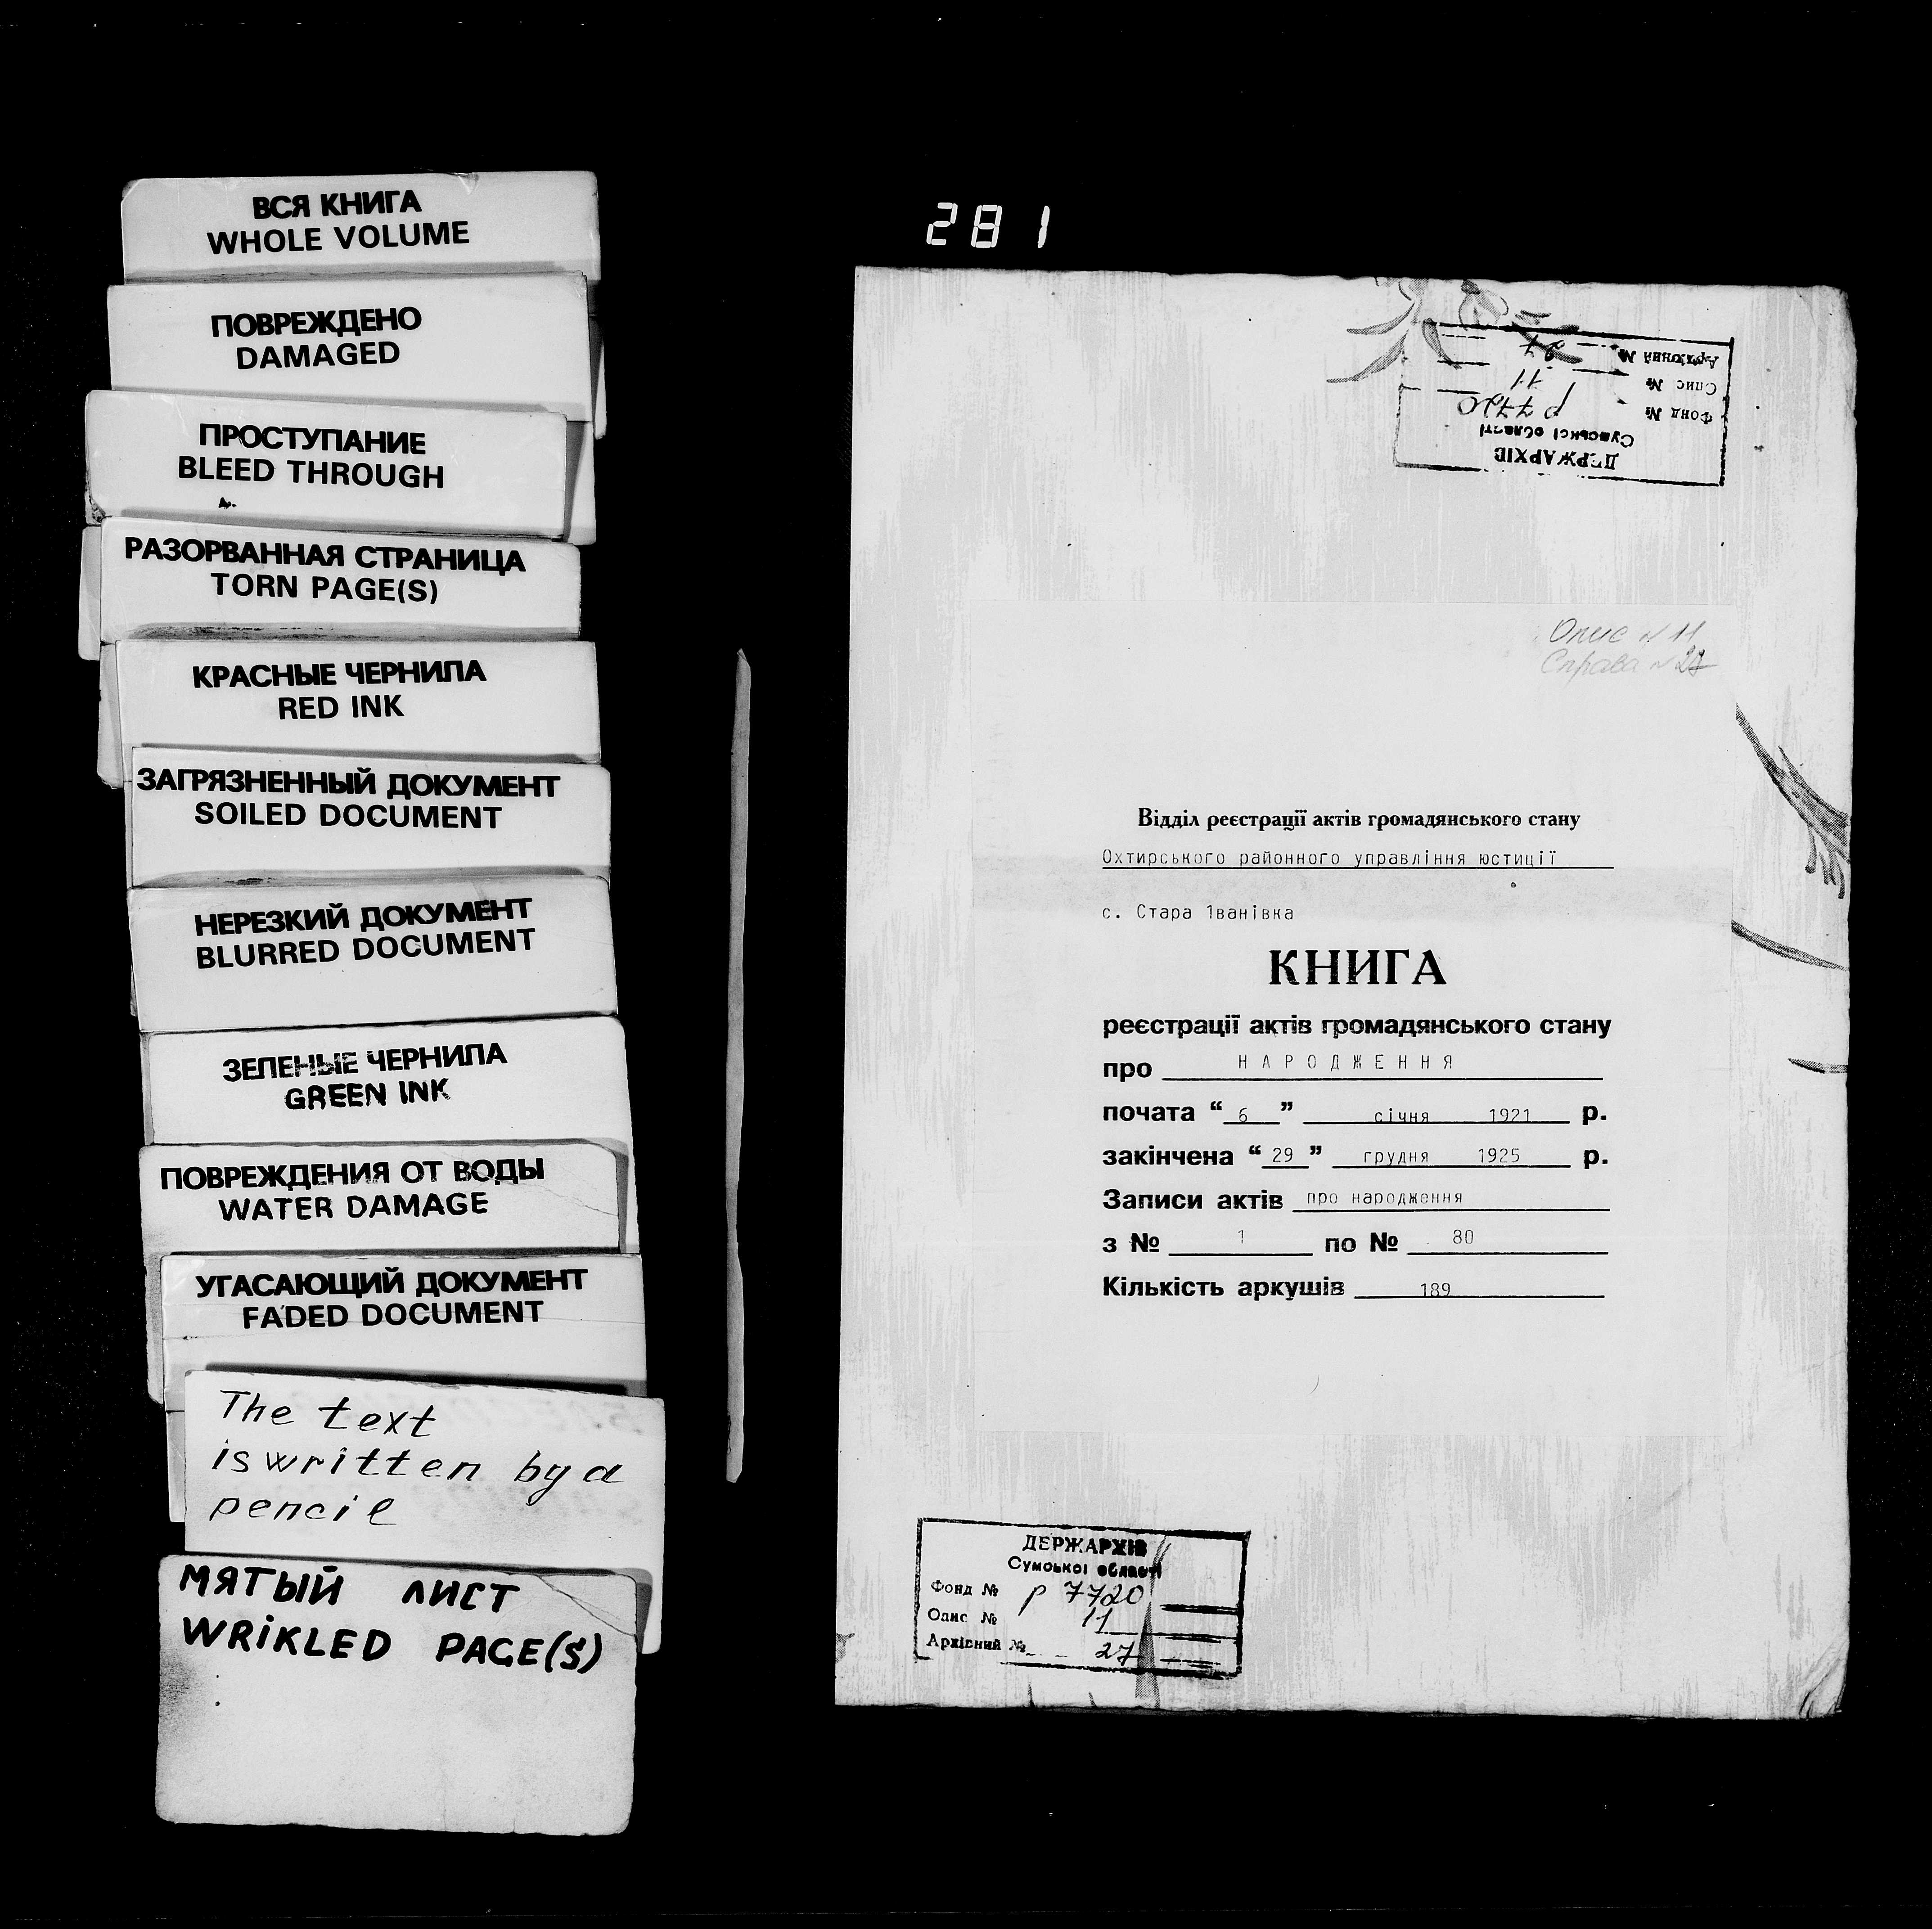 ВСЯ КНИГА
WHOLE VOLUME
ПОВРЕЖДЕНО
DAMAGED
ПРОСТУПАНИЕ
BLEED THROUGH
РАЗОРВАННАЯ СТРАНИЦА
TORN PAGE(S)
КРАСНЫЕ ЧЕРНИЛА
RED INK
ЗАГРЯЗНЕННЫЙ ДОКУМЕНТ
SOILED DOCUMENT
НЕРЕЗКИЙ ДОКУМЕНТ
BLURRED DOCUMENT
ЗЕЛЕНЫЕ ЧЕРНИЛА
GREEN INK
ПОВРЕЖДЕНИЯ ОТ ВОДЫ
WATER DAMAGE
УГАСАЮЩИЙ ДОКУМЕНТ
FADED DOCUMENT
The text
is written by a
pencil
МЯТЫЙ ЛИСТ
WRIKLED PAGE(S)
281
ДЕРЖАРХІВ
Сумської області
Фонд № р 7720
Опис № 11
Архівний № 27
Опис N 11
Справа N 27
Відділ реєстрації актів громадянського стану
Охтирського районного управління юстиції
с. Стара Іванівка
КНИГА
реєстрації актів громадянського стану
про НАРОДЖЕННЯ
почата “ 6 ” січня 1921 р.
закінчена “ 29 ” грудня 1925 р.
Записи актів про народження
з № 1 по № 80
Кількість аркушів 189
ДЕРЖАРХІВ
Сумської області
Фонд № р 7720
Опис № 11
Архівний № 27